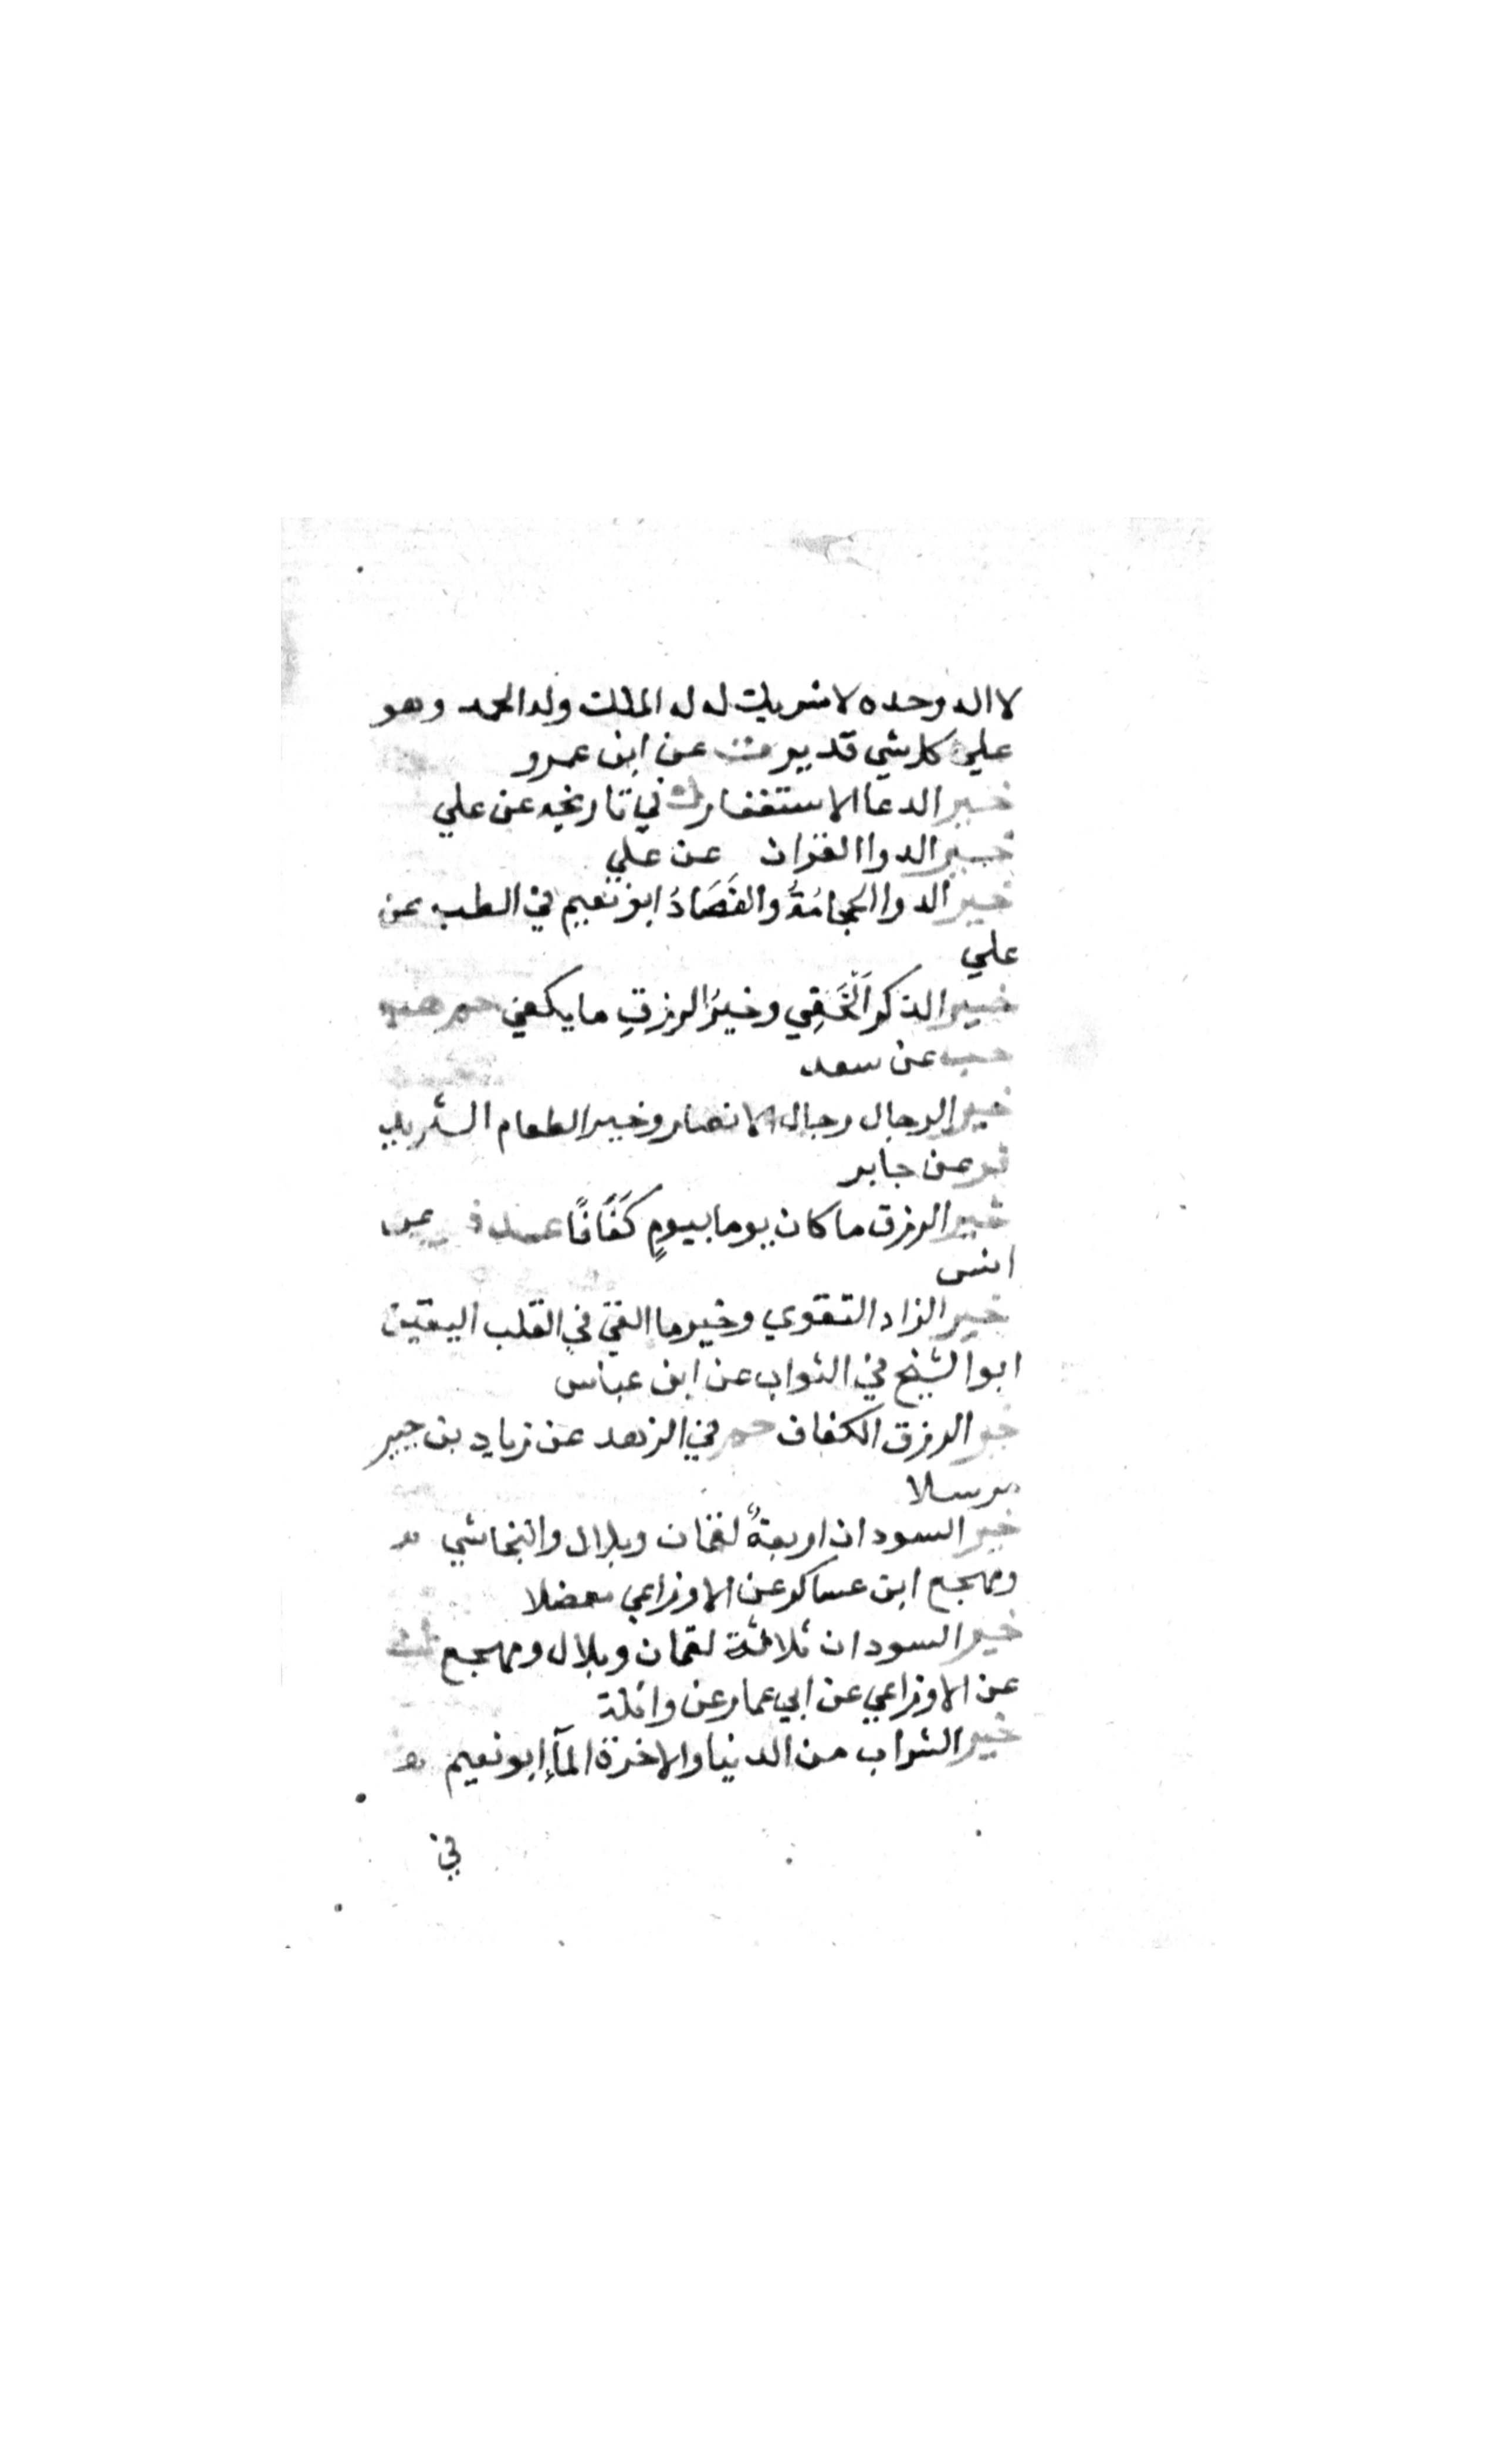 لا اله وحده لا شريك له له الملك وله الحمد وهو
علي كل شي قدير ت عن ابن عمرو
خير الدعا الاستغفار ك في تاريخه عن علي
خير الدوا القران عن علي
خير الدوا الحجامةُ والفَصَادُ ابو نعيم في الطب عن
علي
خير الذكر الخَفِي وخيرُ الرزقِ ما يكفي حم هب
حب عن سعد
خير الرجال رجال الانصار وخير الطعام الثريد
فر عن جابر
خير الرزق ما كان يوما بيومٍ كَفَافًا عد فر عن
انس
خير الزاد التقوي وخير ما القي في القلب اليقين
ابو الشيخ في الثواب عن ابن عباس
خير الرزق الكفاف حم في الزهد عن زياد بن جبير
مرسلا
خير السودان اربعةٌ لقمان وبلال والنجاشي
ومهجع ابن عساكر عن الاوزاعي معضلا
خير السودان ثلاثة لقمان وبلال ومهجع ك
عن الاوزاعي عن ابي عمار عن واثلة
خير الشراب من الدنيا والاخرة المآء ابو نعيم
في